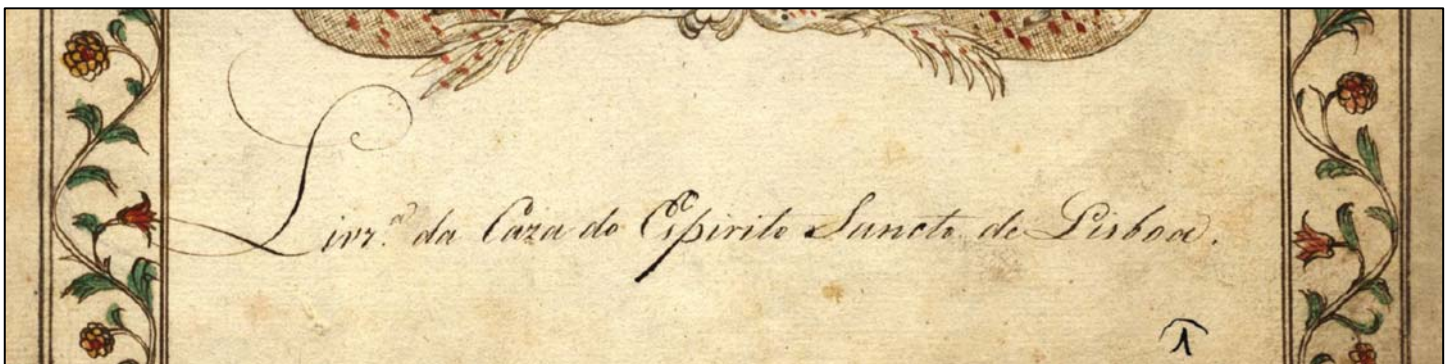 Livr.ª da Caza do Espirito Sancto de Lisboa.
1